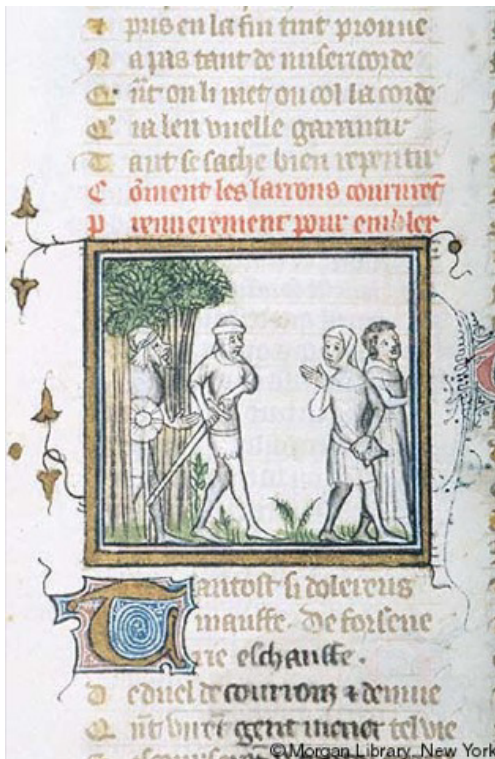 pris en la fin tint prouue
N a pas tant de misericorde
Q ñt on li met ou col la corde
Q' ia len vuelle garantir
T ant se sache bien repentir
C õment les larrons coururẽt
P remierement pour embler
Tantost si dolereus
mauffe. De forsene
rie eschauffe.
D e duel de courrouz & denuie
Q ñt virẽt gent mener tel vie
© Morgan Library, New York